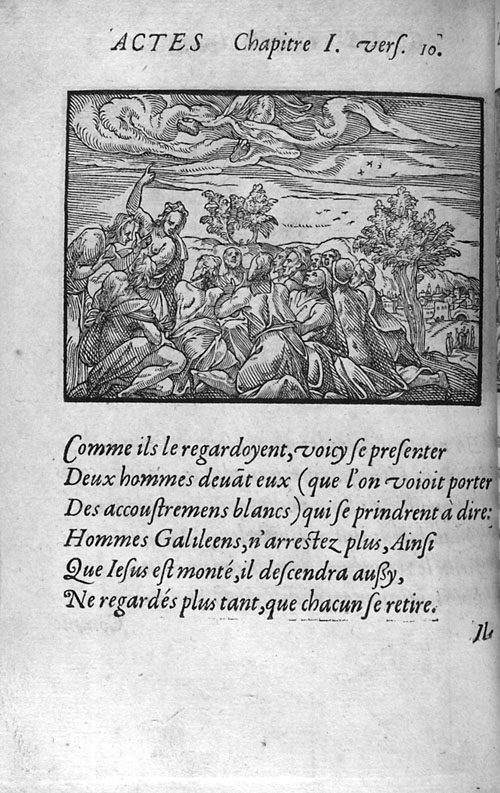 ACTES Chapitre I. verſ. 10.
Comme ils le regardoyent, voicy ſe preſenter
Deux hommes deuãt eux (que l'on voioit porter
Des accouſtremens blancs) qui ſe prindrent à dire:
Hommes Galileens, n'arreſtez plus, Ainſi
Que Ieſus eſt monté, il deſcendra auſſy,
Ne regardés plus tant, que chacun ſe retire.
Il